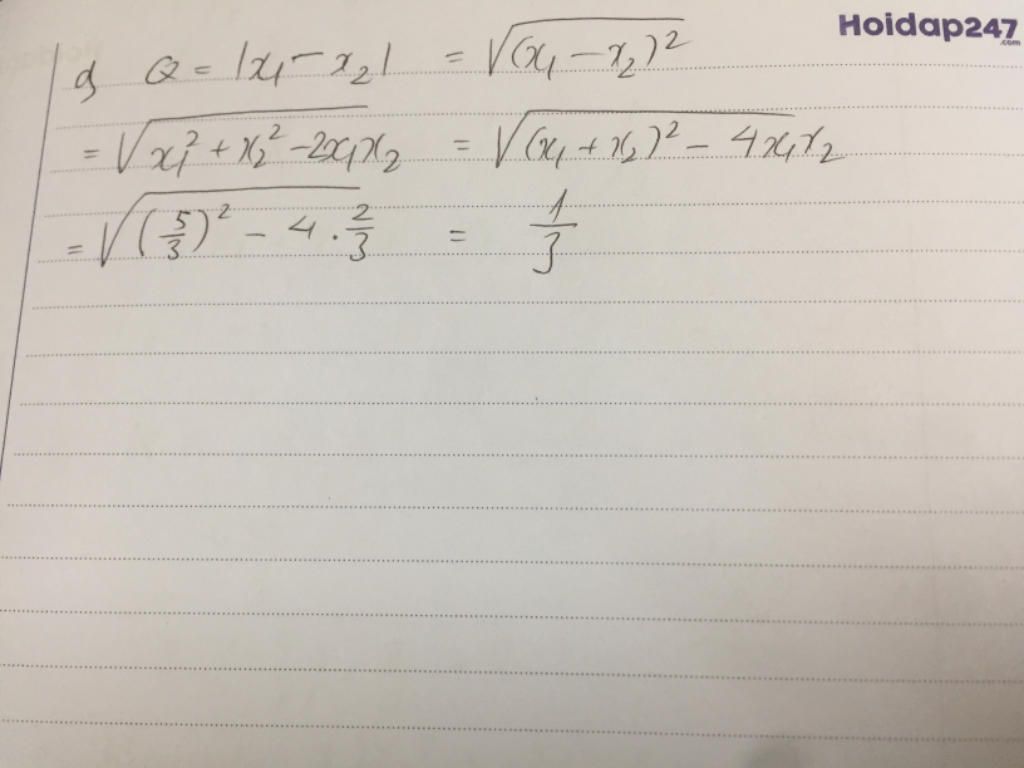 Hoidap247
.com
d) Q = |x₁ - x₂| = √(x₁ - x₂)²
= √x₁² + x₂² - 2x₁x₂ = √(x₁ + x₂)² - 4x₁x₂
= √(5/3)² - 4 . 2/3 = 1/3